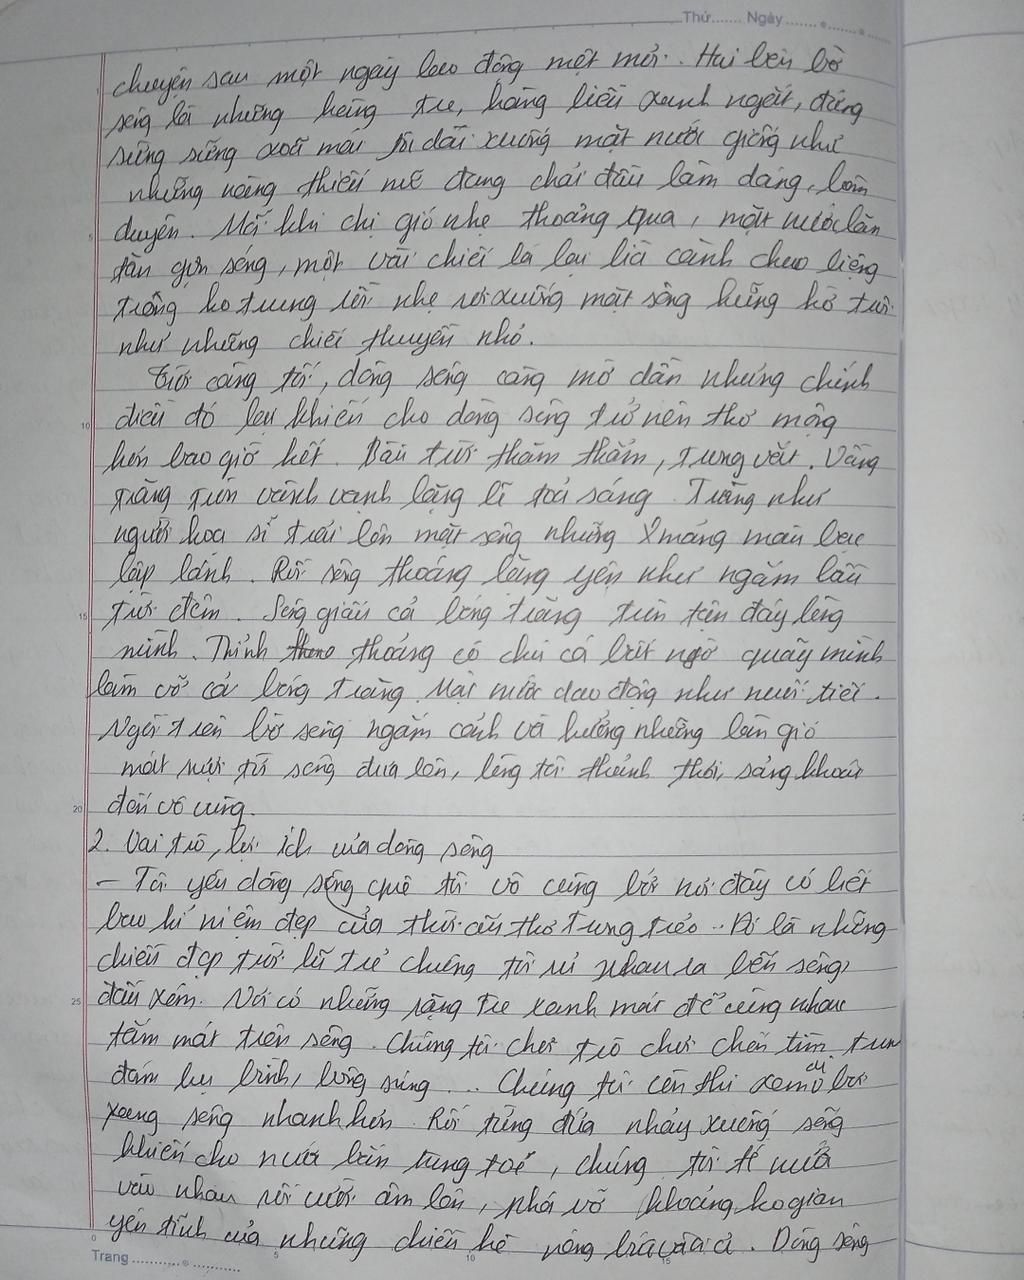 Thứ....... Ngày.......
chuyện sau một ngày lao động mệt mỏi. Hai bên bờ
sông là những hàng tre, hàng liễu xanh ngắt, đứng
sừng sững xoã mái tóc dài xuống mặt nước giống như
những nàng thiếu nữ đang chải đầu làm dáng, làm
duyên. Mỗi khi chị gió nhẹ thoảng qua, mặt nước lăn
5
tăn gợn sóng, một vài chiếc lá lại lìa cành chao liệng
trong ko trung rồi nhẹ rơi xuống mặt sông hững hờ trôi
như những chiếc thuyền nhỏ.
Trời càng tối, dòng sông càng mờ dần nhưng chính
điều đó lại khiến cho dòng sông trở nên thơ mộng
10
hơn bao giờ hết. Bầu trời thăm thẳm, trong vắt. Vầng
trăng tròn vành vạnh lặng lẽ toả sáng. Trăng như
người hoạ sĩ trải lên mặt sông những mảng màu bạc
lấp lánh. Rồi sông thoáng lặng yên như ngắm bầu
trời đêm. Sông giấu cả bóng trăng tròn tận đáy lòng
15
mình. Thỉnh thoảng có chú cá bất ngờ quẫy mình
làm vỡ cả bóng trăng. Mặt nước dao động như nuối tiếc.
Ngồi trên bờ sông ngắm cảnh và hưởng những làn gió
mát rượi từ sông đưa lên, lòng tôi thảnh thơi, sảng khoái
đến vô cùng.
20
2. Vai trò, lợi ích của dòng sông
- Tôi yêu dòng sông quê tôi vô cùng bởi nơi đây có biết
bao kỉ niệm đẹp của thời ấu thơ trong trẻo.. Đó là những
chiều đẹp trời lũ trẻ chúng tôi rủ nhau ra bến sông
đầu xóm. Nơi có những rặng tre xanh mát để cùng nhau
25
tắm mát trên sông. Chúng tôi chơi trò chơi chốn tìm, trận
đám lục bình, bông súng ... Chúng tôi còn thi xem ai bơi
sang sông nhanh hơn. Rồi từng đứa nhảy xuống sông
khiến cho nước bắn tung toé, chúng tôi té nước
vào nhau rồi cười ầm lên, phá vỡ khoảng ko gian
yên tĩnh của những chiều hè nóng bức oi ả. Dòng sông
0
5
10
15
Trang ..........